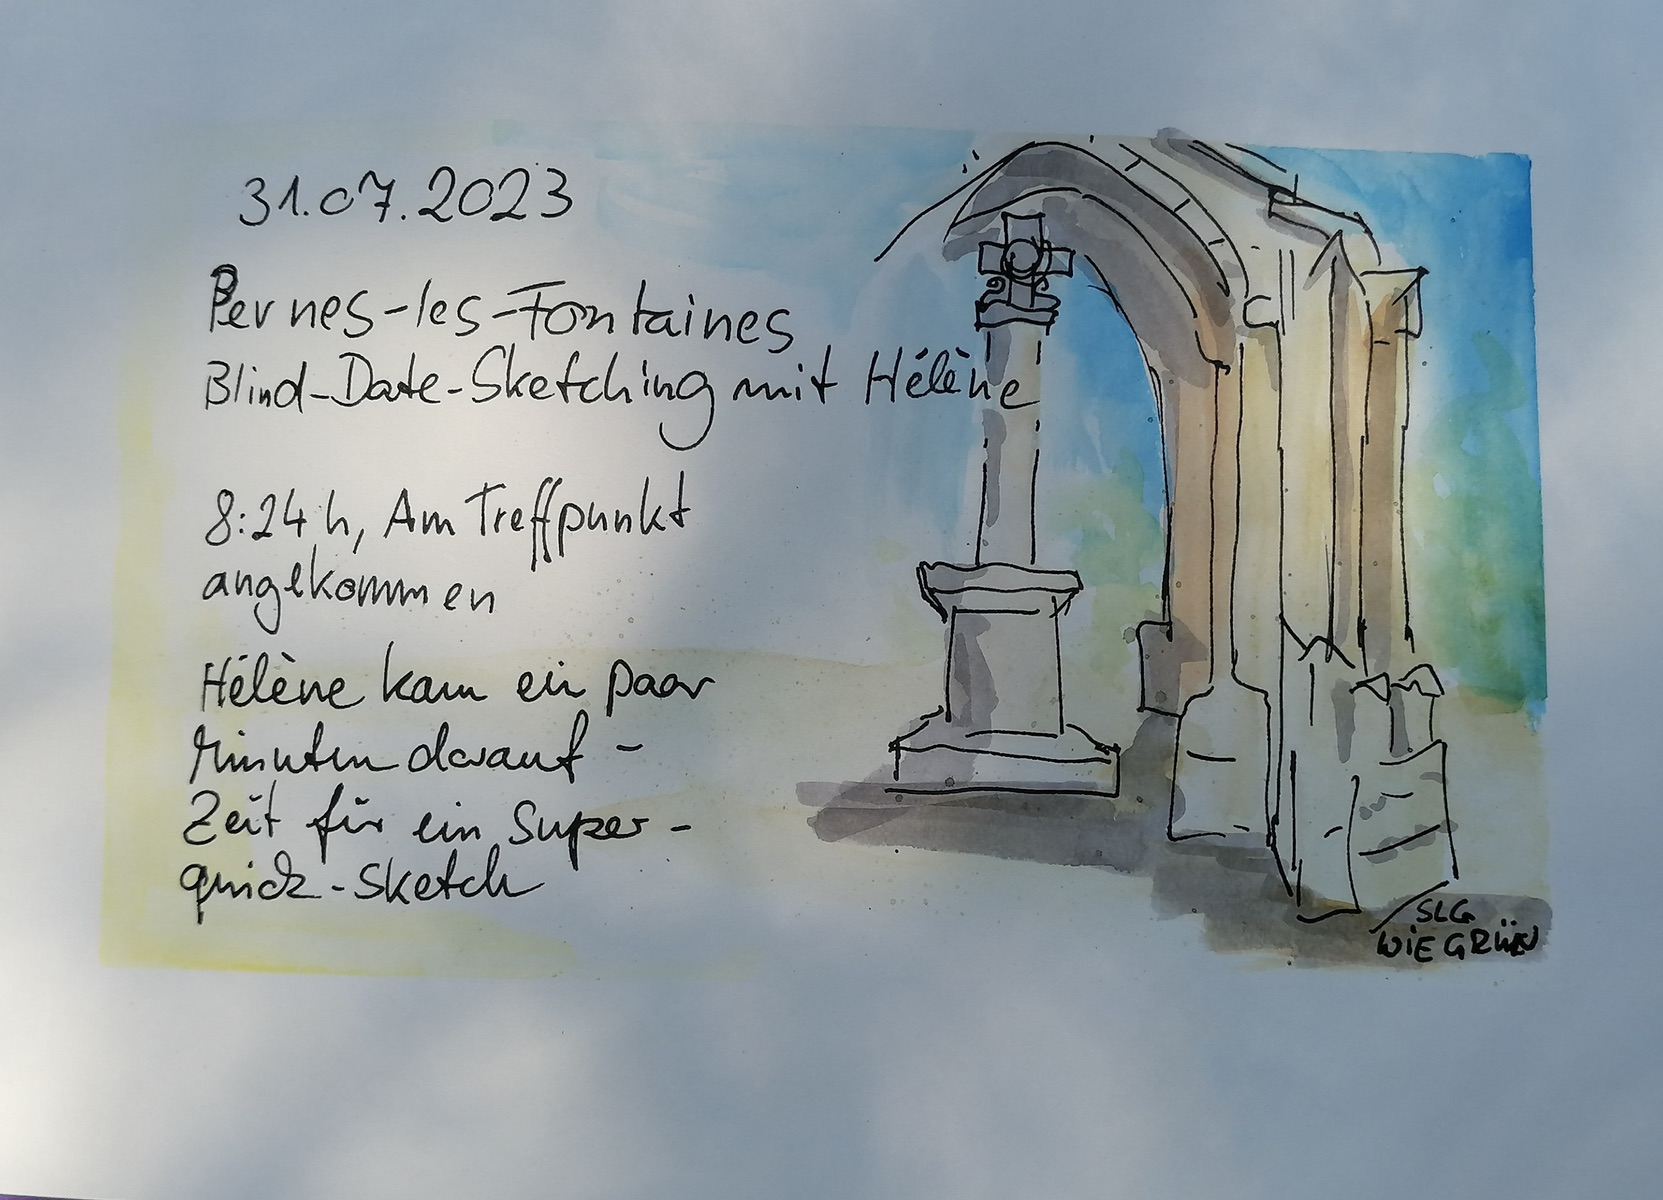 31.07.2023
Pernes-les-Fontaines
Blind-Date-Sketching mit Hélène
8:24 h, Am Treffpunkt
angekommen
Hélène kam ein paar
Minuten darauf -
Zeit für ein Super-
quick-Sketch
SLG
WIEGRÜN